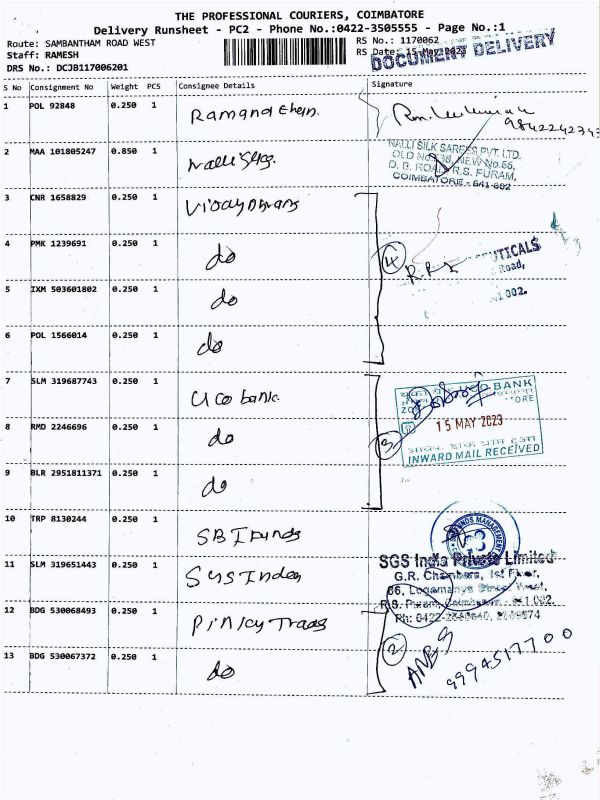 THE PROFESSIONAL COURIERS, COIMBATORE
Delivery Runsheet - PC2 - Phone No.:0422-3505555 - Page No.:1
Route: SAMBANTHAM ROAD WEST
RS No.: 1170062
Staff: RAMESH
RS Date: 15-May-2023
DRS No.: DCJB117006201
DOCUMENT DELIVERY
S No Consignment No Weight PCS Consignee Details Signature
1 POL 92848 0.250 1
2 MAA 101805247 0.850 1
NALLI SILK SAREES PVT. LTD.
OLD No. NEW No.
D. B. ROAD, R.S. PURAM,
COIMBATORE - 641 002
3 CNR 1658829 0.250 1
4 PMK 1239691 0.250 1 do 4
UTICALS
Road,
002.
5 IXM 503601802 0.250 1 do
6 POL 1566014 0.250 1 do
7 SLM 319687743 0.250 1 Uco bank
BANK
TORE
15 MAY 2023
INWARD MAIL RECEIVED
8 RMD 2246696 0.250 1 do 3
9 BLR 2951811371 0.250 1 do
10 TRP 8130244 0.250 1 SBI Funds
11 SLM 319651443 0.250 1
SGS India Private Limited
G.R. Chambers, Ist Floor,
R.S. Puram,
Ph: 0422-
12 BDG 530068493 0.250 1
13 BDG 530067372 0.250 1 do 2
9994517700